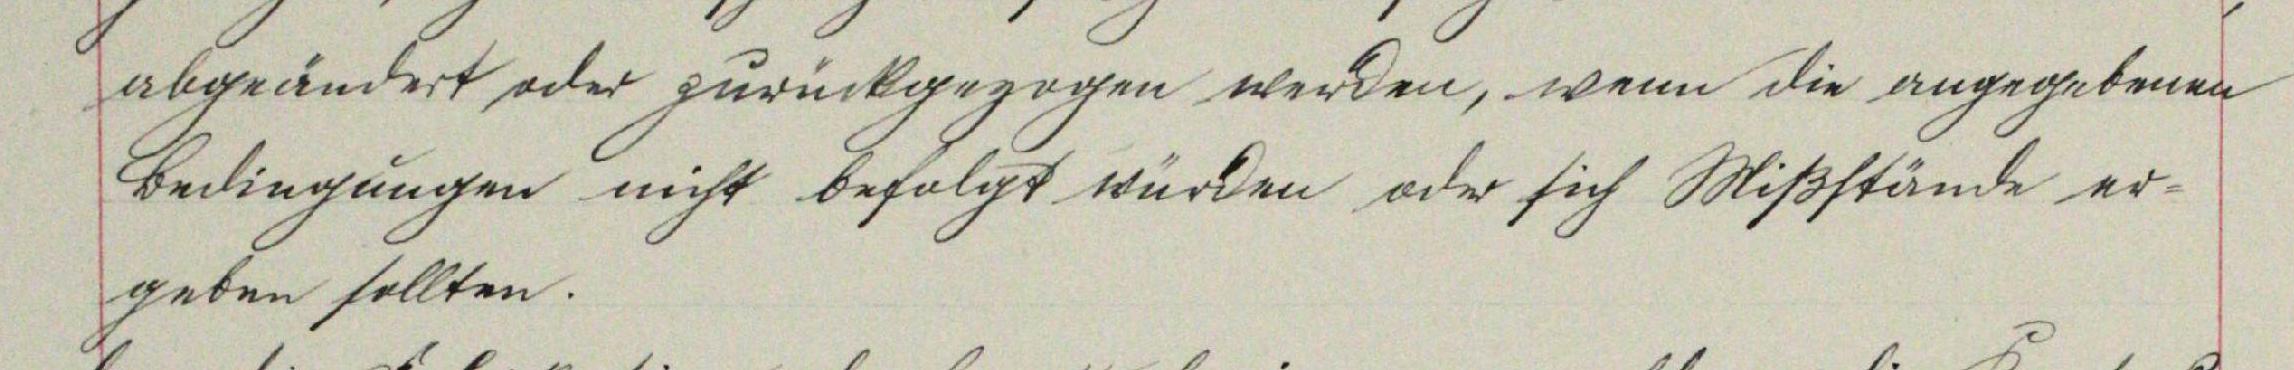 abgeändert oder zurückgezogen werden, wenn die angegebenen
Bedingungen nicht befolgt würden oder sich Mißstände er=
geben sollten.